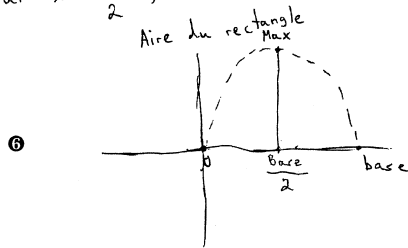 2
Aire du rectangle
Max
❻
0
Base
2
base